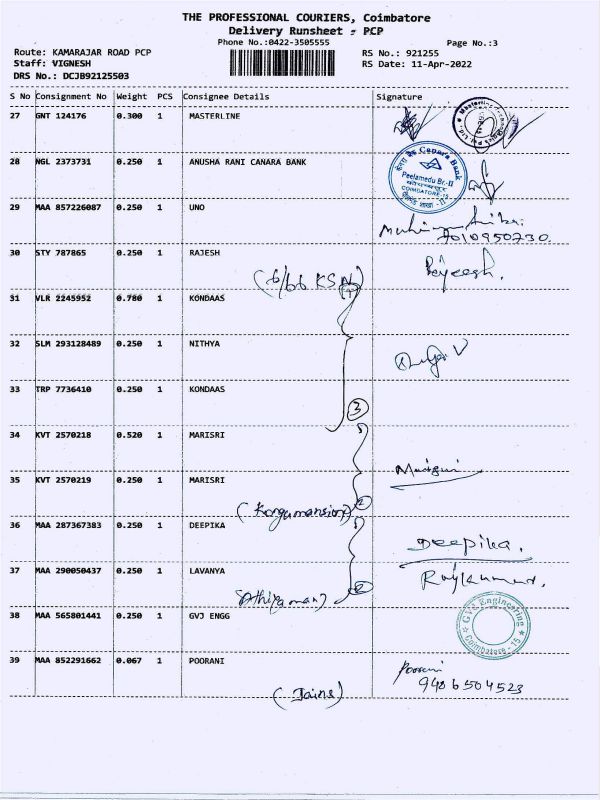 THE PROFESSIONAL COURIERS, Coimbatore
Delivery Runsheet - PCP
Phone No.:0422-3505555
Page No.:3
Route: KAMARAJAR ROAD PCP
RS No.: 921255
Staff: VIGNESH
RS Date: 11-Apr-2022
DRS No.: DCJB92125503
S No Consignment No Weight PCS Consignee Details Signature
27 GNT 124176 0.300 1 MASTERLINE
28 NGL 2373731 0.250 1 ANUSHA RANI CANARA BANK
Canara Bank
Peelamedu Br.-II
COIMBATORE-15
29 MAA 857226087 0.250 1 UNO
7010950730
30 STY 787865 0.250 1 RAJESH
Rajeesh.
31 VLR 2245952 0.780 1 KONDAAS
32 SLM 293128489 0.250 1 NITHYA
33 TRP 7736410 0.250 1 KONDAAS
3
34 KVT 2570218 0.520 1 MARISRI
35 KVT 2570219 0.250 1 MARISRI
(Kongumansion)
2
36 MAA 287367383 0.250 1 DEEPIKA
Deepika.
37 MAA 290050437 0.250 1 LAVANYA
Rajkumar.
2
38 MAA 565801441 0.250 1 GVJ ENGG
GVJ Engineering
Coimbatore - 15
39 MAA 852291662 0.067 1 POORANI
Poorani
9486504523
(Jains)